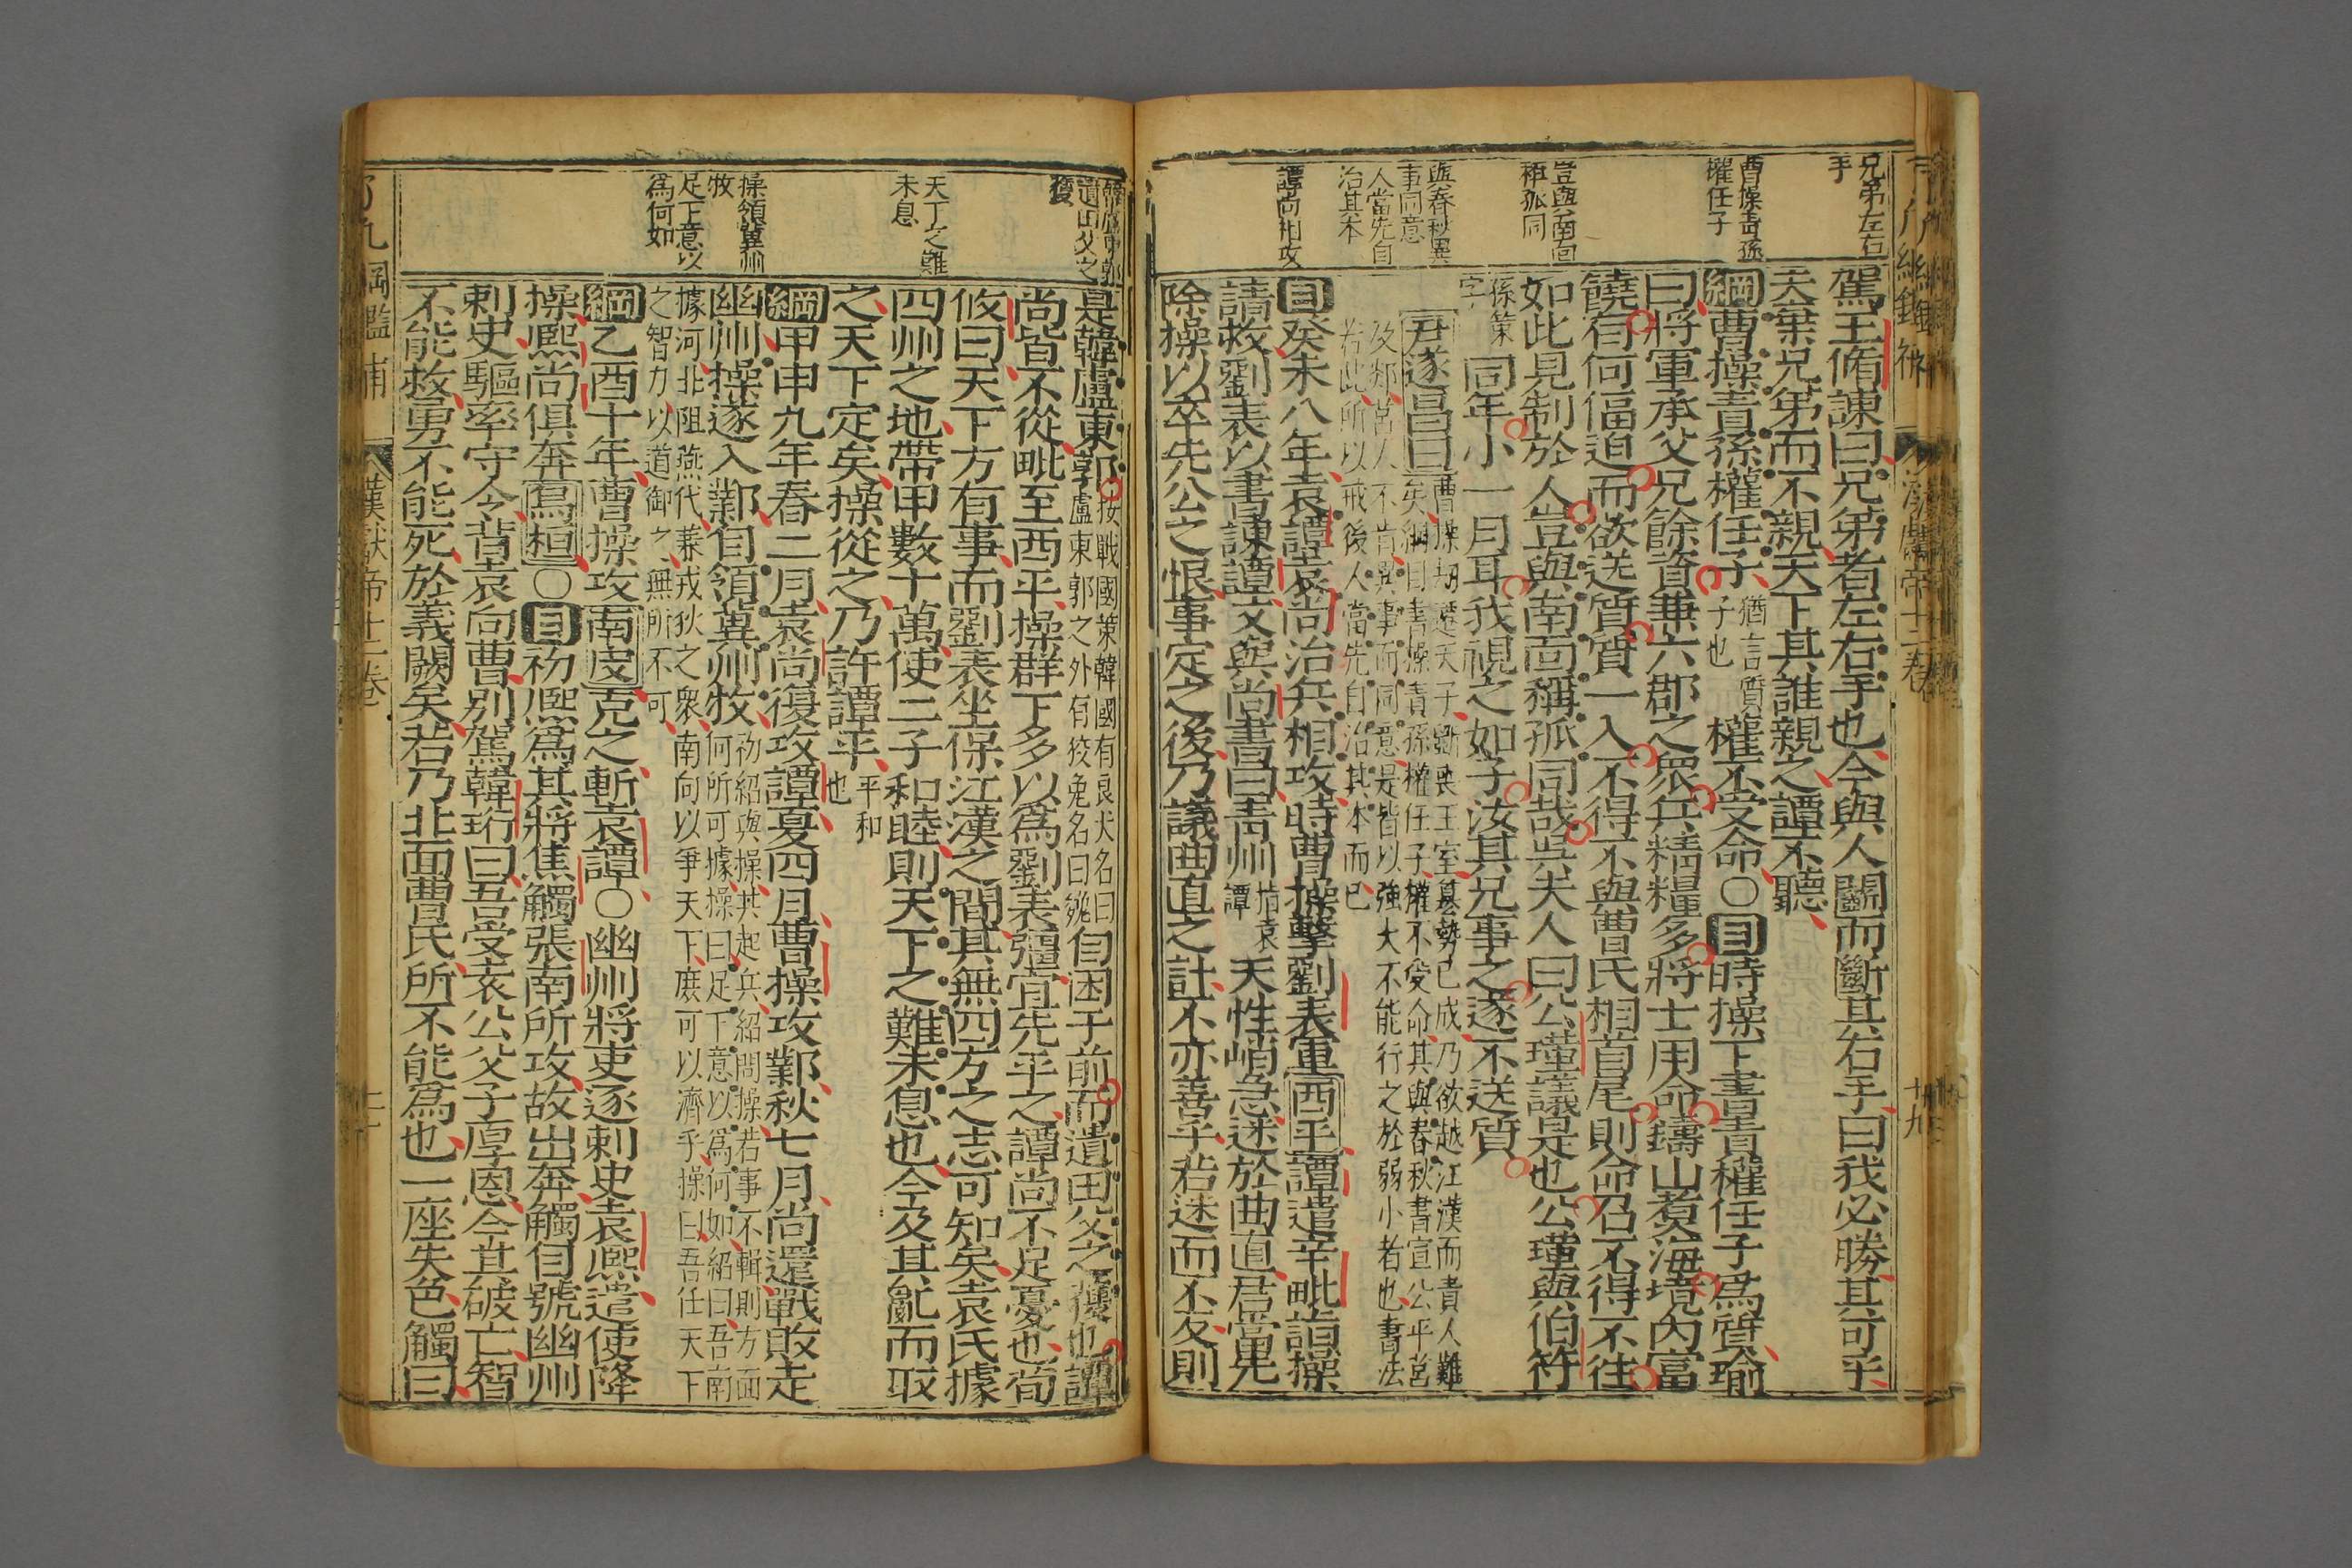 兄弟左右
手
曹操責孫
權任子
豈與南面
稱孤同
與春秋異
事同意
人當先自
治其本
譚尚相攻
駕王脩諫曰兄弟者左右手也今與人鬬而斷其右手曰我必勝其可乎
夫棄兄弟而不親天下其誰親之譚不聽
綱曹操責孫權任子
猶言質
子也
權不受命○目時操下書責權任子爲質瑜
曰將軍承父兄餘資兼六郡之衆兵精糧多將士用命鑄山煑海境內富
饒有何偪迫而欲送質質一入不得不與曹氏相首尾則命召不得不往
如此見制於人豈與南面稱孤同哉吳夫人曰公瑾議是也公瑾與伯符
孫策
字
同年小一月耳我視之如子汝其兄事之遂不送質
尹遂昌曰
曹操刼遷天子斵喪王室基勢已成乃欲越江漢而責人難
矣綱目書操責孫權任子權不受命其與春秋書宣公平莒
及郯莒人不肯異事而同意是皆以強大不能行之於弱小者也書法
若此所以戒後人當先自治其本而已
目癸未八年袁譚袁尚治兵相攻時曹操擊劉表軍西平譚遣辛毗詣操
請救劉表以書諫譚又與尚書曰靑州
指袁
譚
天性峭急迷於曲直君當先
除操以卒先公之恨事定之後乃議曲直之計不亦善乎若迷而不反則
漢獻帝十二卷
十九
韓盧東郭
遺田父之
獲
天下之難
未息
操領冀州
牧
足下意以
爲何如
是韓盧東郭
按戰國策韓國有良犬名曰
盧東郭之外有狡兔名曰㕙
自困于前而遺田父之獲也譚
尚皆不從毗至西平操群下多以爲劉表彊宜先平之譚尚不足憂也荀
攸曰天下方有事而劉表坐保江漢之間其無四方之志可知矣袁氏據
四州之地帶甲數十萬使二子和睦則天下之難未息也今及其亂而取
之天下定矣操從之乃許譚平
平和
也
綱甲申九年春二月袁尚復攻譚夏四月曹操攻鄴秋七月尚還戰敗走
幽州操遂入鄴自領冀州牧
初紹與操共起兵紹問操若事不輯則方面
何所可據操曰足下意以爲何如紹曰吾南
據河北阻燕代兼戎狄之衆南向以爭天下庶可以濟乎操曰吾任天下
之智力以道御之無所不可
綱乙酉十年曹操攻南皮克之斬袁譚○幽州將吏逐刺史袁熙遣使降
操熙尚俱奔烏桓○目初熙爲其將焦觸張南所攻故出奔觸自號幽州
刺史驅率守令背袁向曹別駕韓珩曰吾受袁公父子厚恩今其破亡智
不能救勇不能死於義闕矣若乃北面曹氏所不能爲也一座失色觸曰
綱鑑補
漢獻帝十二卷